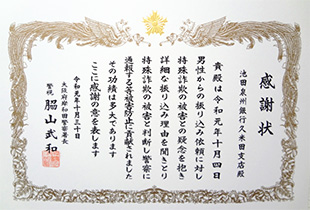 感謝状
池田泉州銀行久米田支店殿
貴殿は令和元年十月四日
男性からの振り込み依頼に対し
特殊詐欺の被害との疑念を抱き
詳細な振り込み理由を聞きとり
特殊詐欺の被害と判断し警察に
通報する等被害防止に貢献されました
その功績は多大であります
ここに感謝の意を表します
令和元年十月三十日
大阪府岸和田警察署長
警視 脇山武和